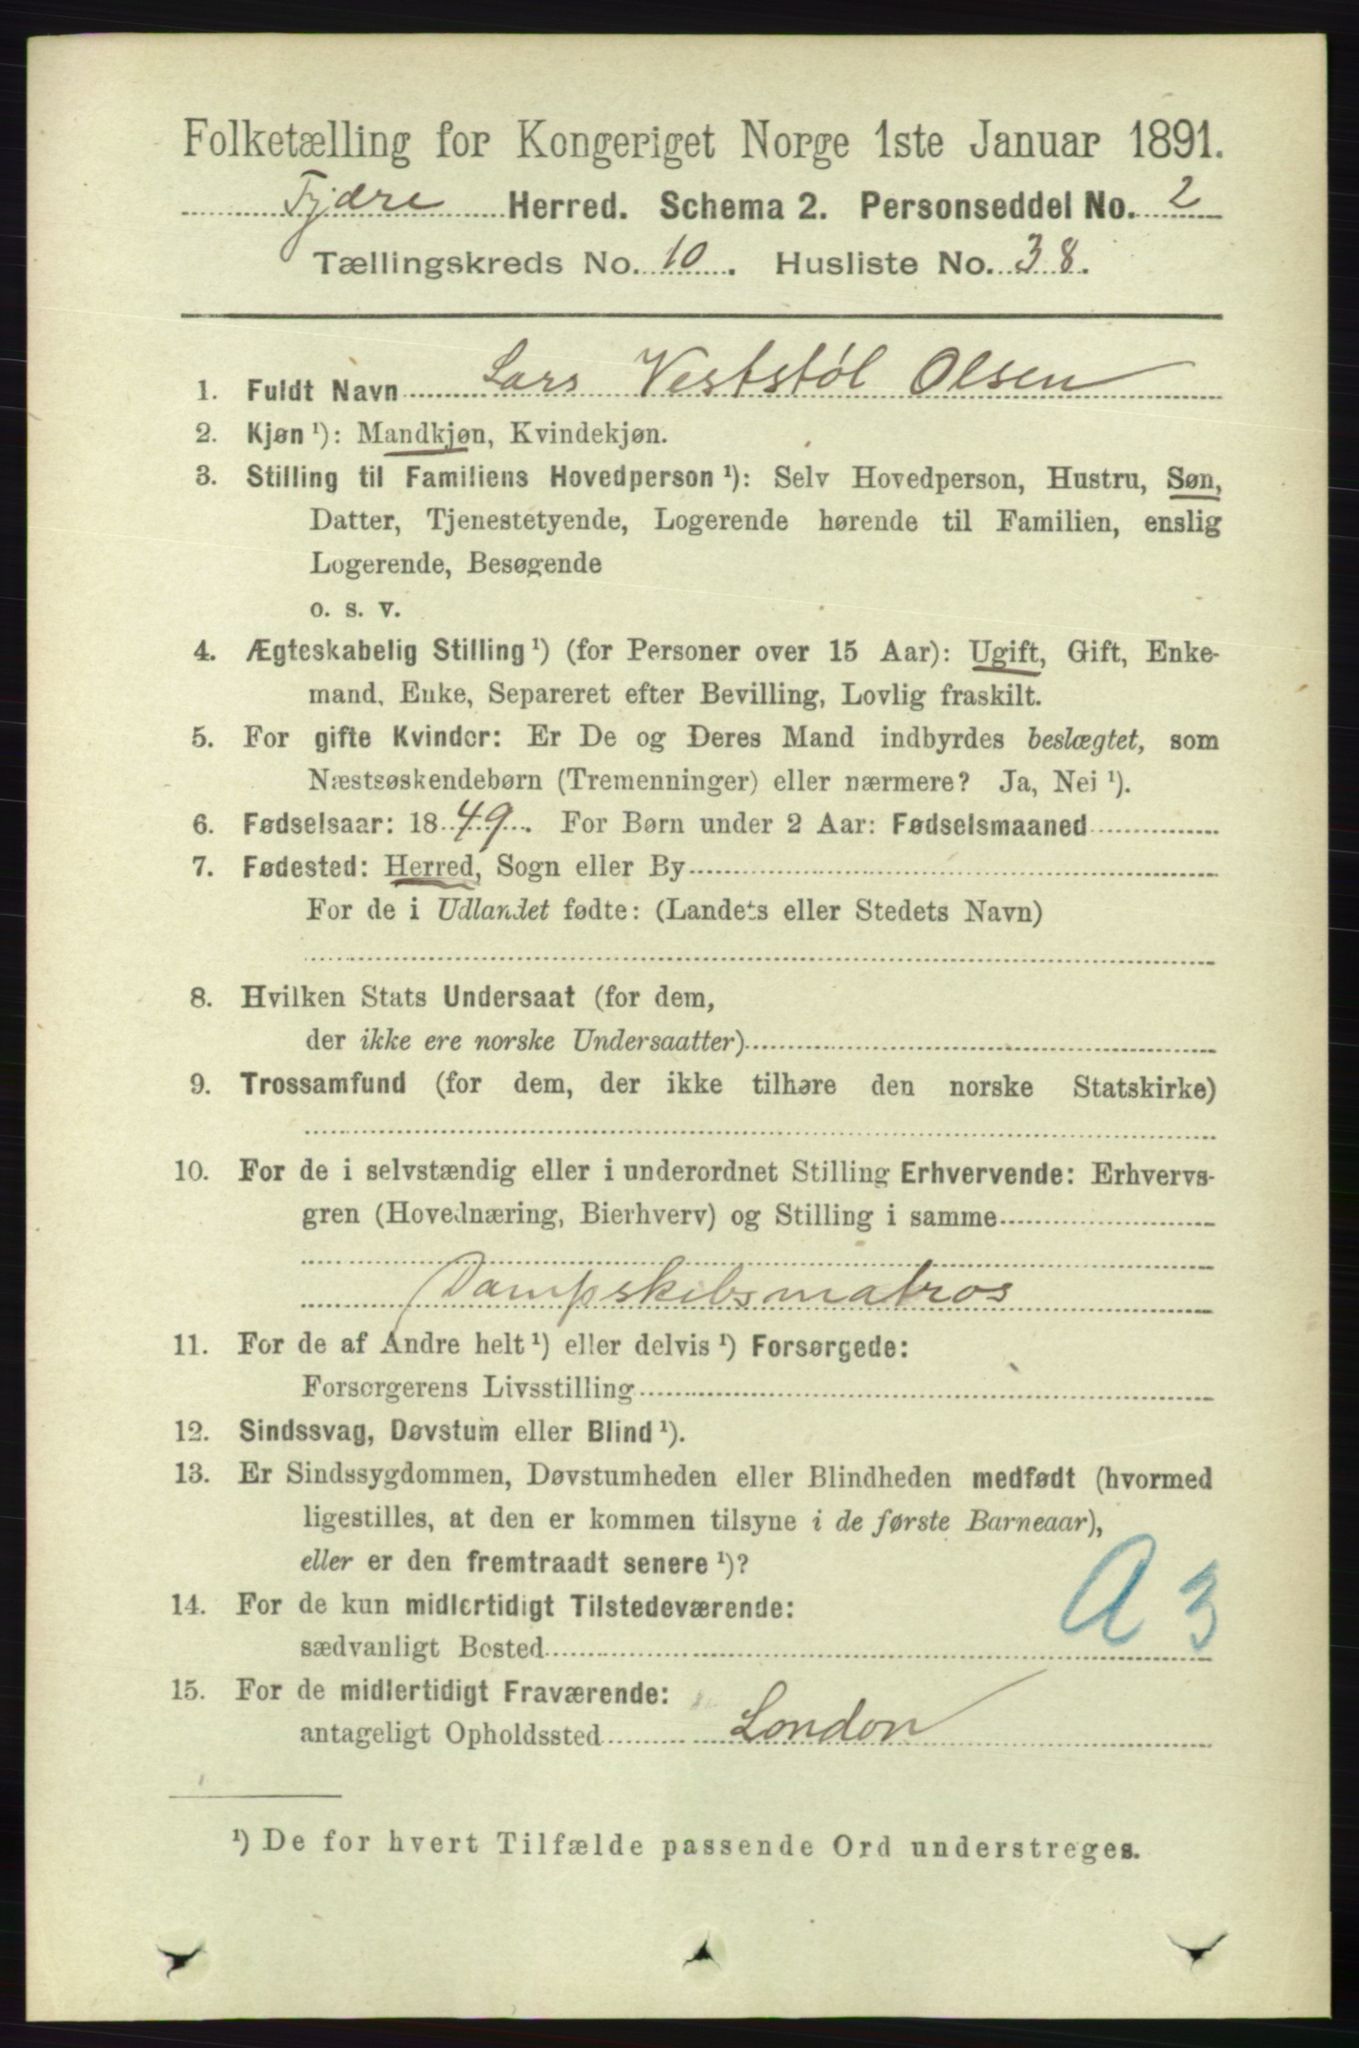 Folketælling for Kongeriget Norge 1ste Januar 1891.
Fjære Herred. Schema 2. Personseddel No. 2
Tællingskreds No. 10. Husliste No. 38.
1. Fuldt Navn Lars Veststøl Olsen
2. Kjøn ¹): Mandkjøn, Kvindekjøn.
3. Stilling til Familiens Hovedperson ¹): Selv Hovedperson, Hustru, Søn,
Datter, Tjenestetyende, Logerende hørende til Familien, enslig
Logerende, Besøgende
o. s. v.
4. Ægteskabelig Stilling ¹) (for Personer over 15 Aar): Ugift, Gift, Enke-
mand, Enke, Separeret efter Bevilling, Lovlig fraskilt.
5. For gifte Kvinder: Er De og Deres Mand indbyrdes beslægtet, som
Næstsøskendebørn (Tremenninger) eller nærmere? Ja, Nei ¹).
6. Fødselsaar: 1849. For Børn under 2 Aar: Fødselsmaaned
7. Fødested: Herred, Sogn eller By
For de i Udlandet fødte: (Landets eller Stedets Navn)
8. Hvilken Stats Undersaat (for dem,
der ikke ere norske Undersaatter)
9. Trossamfund (for dem, der ikke tilhøre den norske Statskirke)
10. For de i selvstændig eller i underordnet Stilling Erhvervende: Erhvervs-
gren (Hovednæring, Bierhverv) og Stilling i samme
Dampskibsmatros
11. For de af Andre helt ¹) eller delvis ¹) Forsørgede:
Forsørgerens Livsstilling
12. Sindssvag, Døvstum eller Blind ¹).
13. Er Sindssygdommen, Døvstumheden eller Blindheden medfødt (hvormed
ligestilles, at den er kommen tilsyne i de første Barneaar),
eller er den fremtraadt senere ¹)?
A 3
14. For de kun midlertidigt Tilstedeværende:
sædvanligt Bosted
15. For de midlertidigt Fraværende:
antageligt Opholdssted London
¹) De for hvert Tilfælde passende Ord understreges.